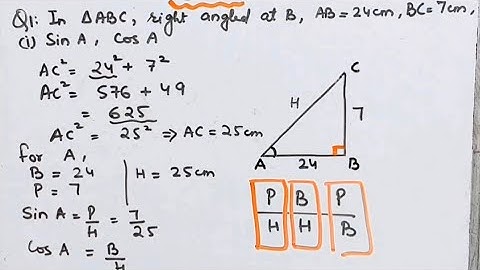 Q1: In △ABC, right angled at B, AB = 24cm, BC = 7cm,
(i) Sin A, Cos A
AC² = 24² + 7²
AC² = 576 + 49
= 625
AC² = 25² ⇒ AC = 25cm
for A,
B = 24
P = 7
H = 25cm
Sin A = P/H = 7/25
Cos A = B/H
C
H
7
A
24
B
P B P
H H B